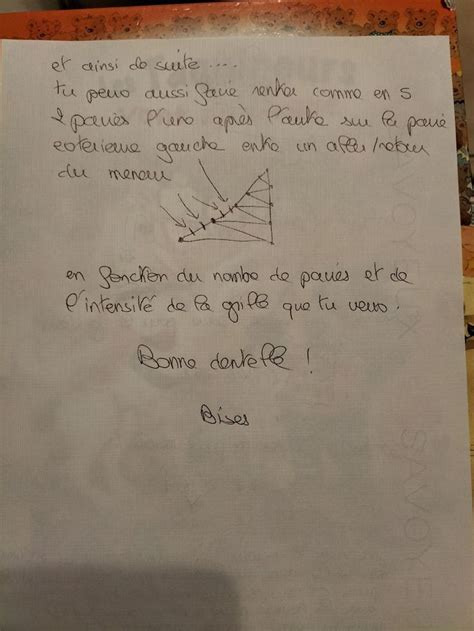 et ainsi de suite....
tu peux aussi faire rentrer comme en 5
2 paires l'une après l'autre sur la paire
exterieure gauche entre un aller/retour
du meneur
en fonction du nombre de paires et de
l'intensité de la griffe que tu veux.
Bonne dentelle !
Bises
SAVOYE